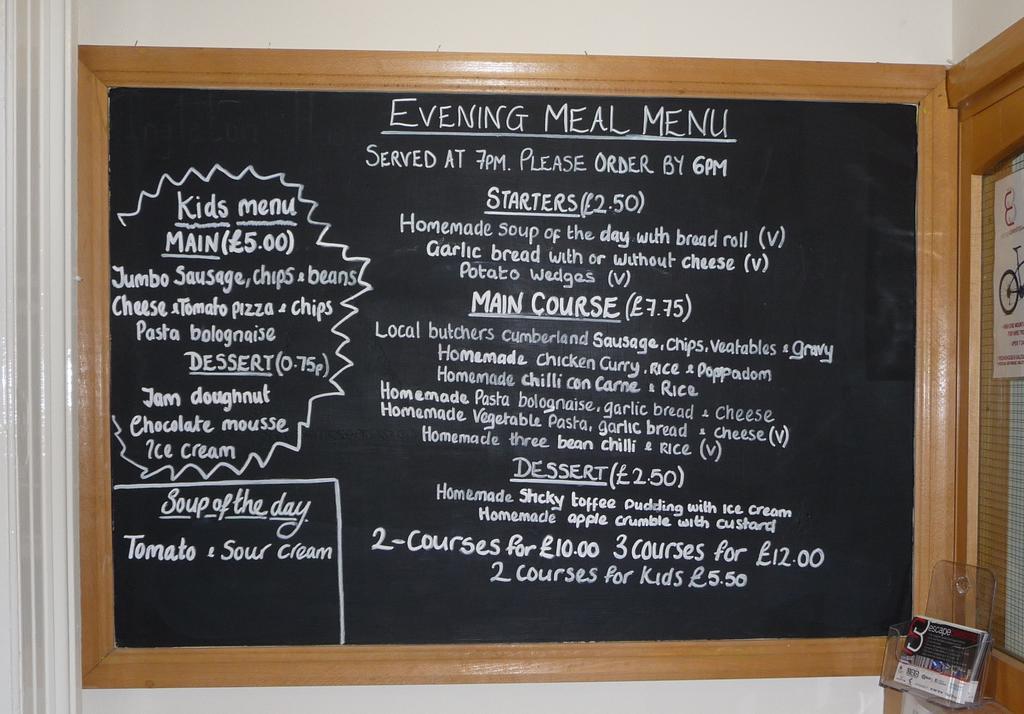 EVENING MEAL MENU
SERVED AT 7PM. PLEASE ORDER BY 6PM
STARTERS (£2.50)
Homemade soup of the day with bread roll (V)
Garlic bread with or without cheese (V)
Potato wedges (V)
MAIN COURSE (£7.75)
Local butchers cumberland Sausage, Chips, Veatables & gravy
Homemade Chicken Curry, RICE & Poppadom
Homemade chilli con Carne & Rice
Homemade Pasta bolognaise, garlic bread & Cheese
Homemade Vegetable Pasta, garlic bread & cheese (V)
Homemade three bean chilli & RICE (V)
DESSERT (£2.50)
Homemade Sticky toffee Pudding with Ice cream
Homemade apple crumble with custard
2-Courses for £10.00 3 Courses for £12.00
2 Courses for Kids £5.50
Kids menu
MAIN (£5.00)
Jumbo Sausage, chips & beans
Cheese & Tomato pizza & chips
Pasta bolognaise
DESSERT (0.75p)
Jam doughnut
Chocolate mousse
Ice cream
Soup of the day
Tomato & Sour cream
escape